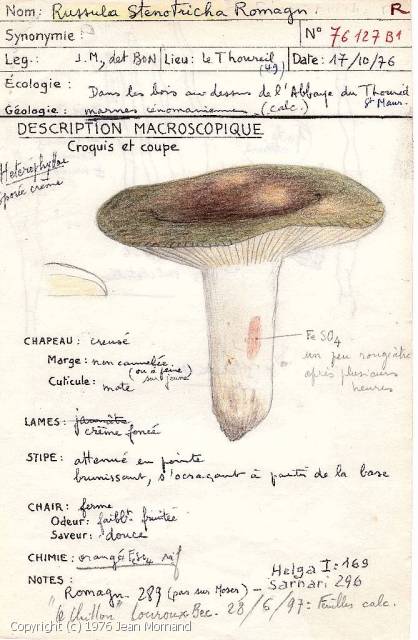 Nom: Russula Stenotricha Romagn. R
Synonymie: N° 76127B1
Leg.: J.M, det BON Lieu: Le Thoureil (49) Date: 17/10/76
Écologie: Dans les bois au dessus de l'Abbaye du Thoureil
St Maur.
Géologie: marnes cénomaniennes (calc.)
DESCRIPTION MACROSCOPIQUE
Croquis et coupe
Heterophyllae
sporée crème
FeSO4
un peu rougeâtre
après plusieurs
heures
CHAPEAU: creusé
Marge: non cannelée
(ou à peine)
Cuticule: mate
LAMES:
crème foncé
STIPE: atténué en pointe
brunissant, s'ocraçant à partir de la base
CHAIR: ferme
Odeur: faiblt fruitée
Saveur: douce
CHIMIE: orangé vif
NOTES: Helga I: 169
Romagn. 289 (pas sur Moser) - Sarnari 296
Louroux Bec. 28/6/97: Feuilles calc.
Copyright (c) 1976 Jean Mornand